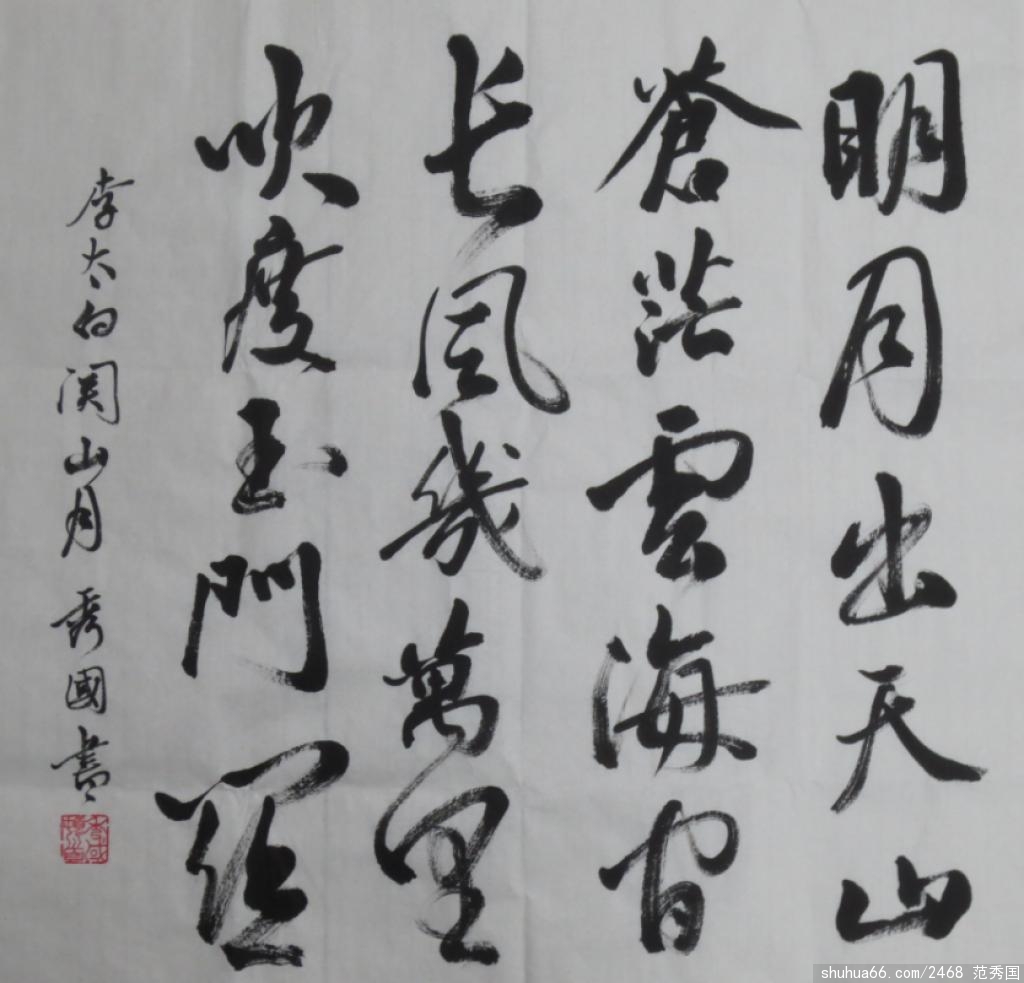 明月出天山
蒼茫雲海间
长風幾萬里
吹度玉門關
李太白関山月 秀國書
shuhua66.com/2468 范秀国